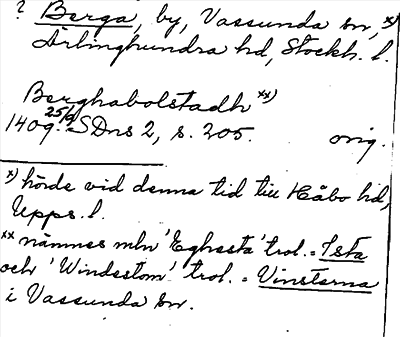 ? Berga, by, Vassunda sn, x)
Ärlinghundra hd, Stockh. l.
Berghabolstadh xx)
1409 25/9 SDns 2, s. 205. orig.
x) hörde vid denna tid till Håbo hd,
Upps. l.
xx nämnes mln 'Eghesta' trol. = Ista
och 'Windestom' trol. = Vinsterna
i Vassunda sn.